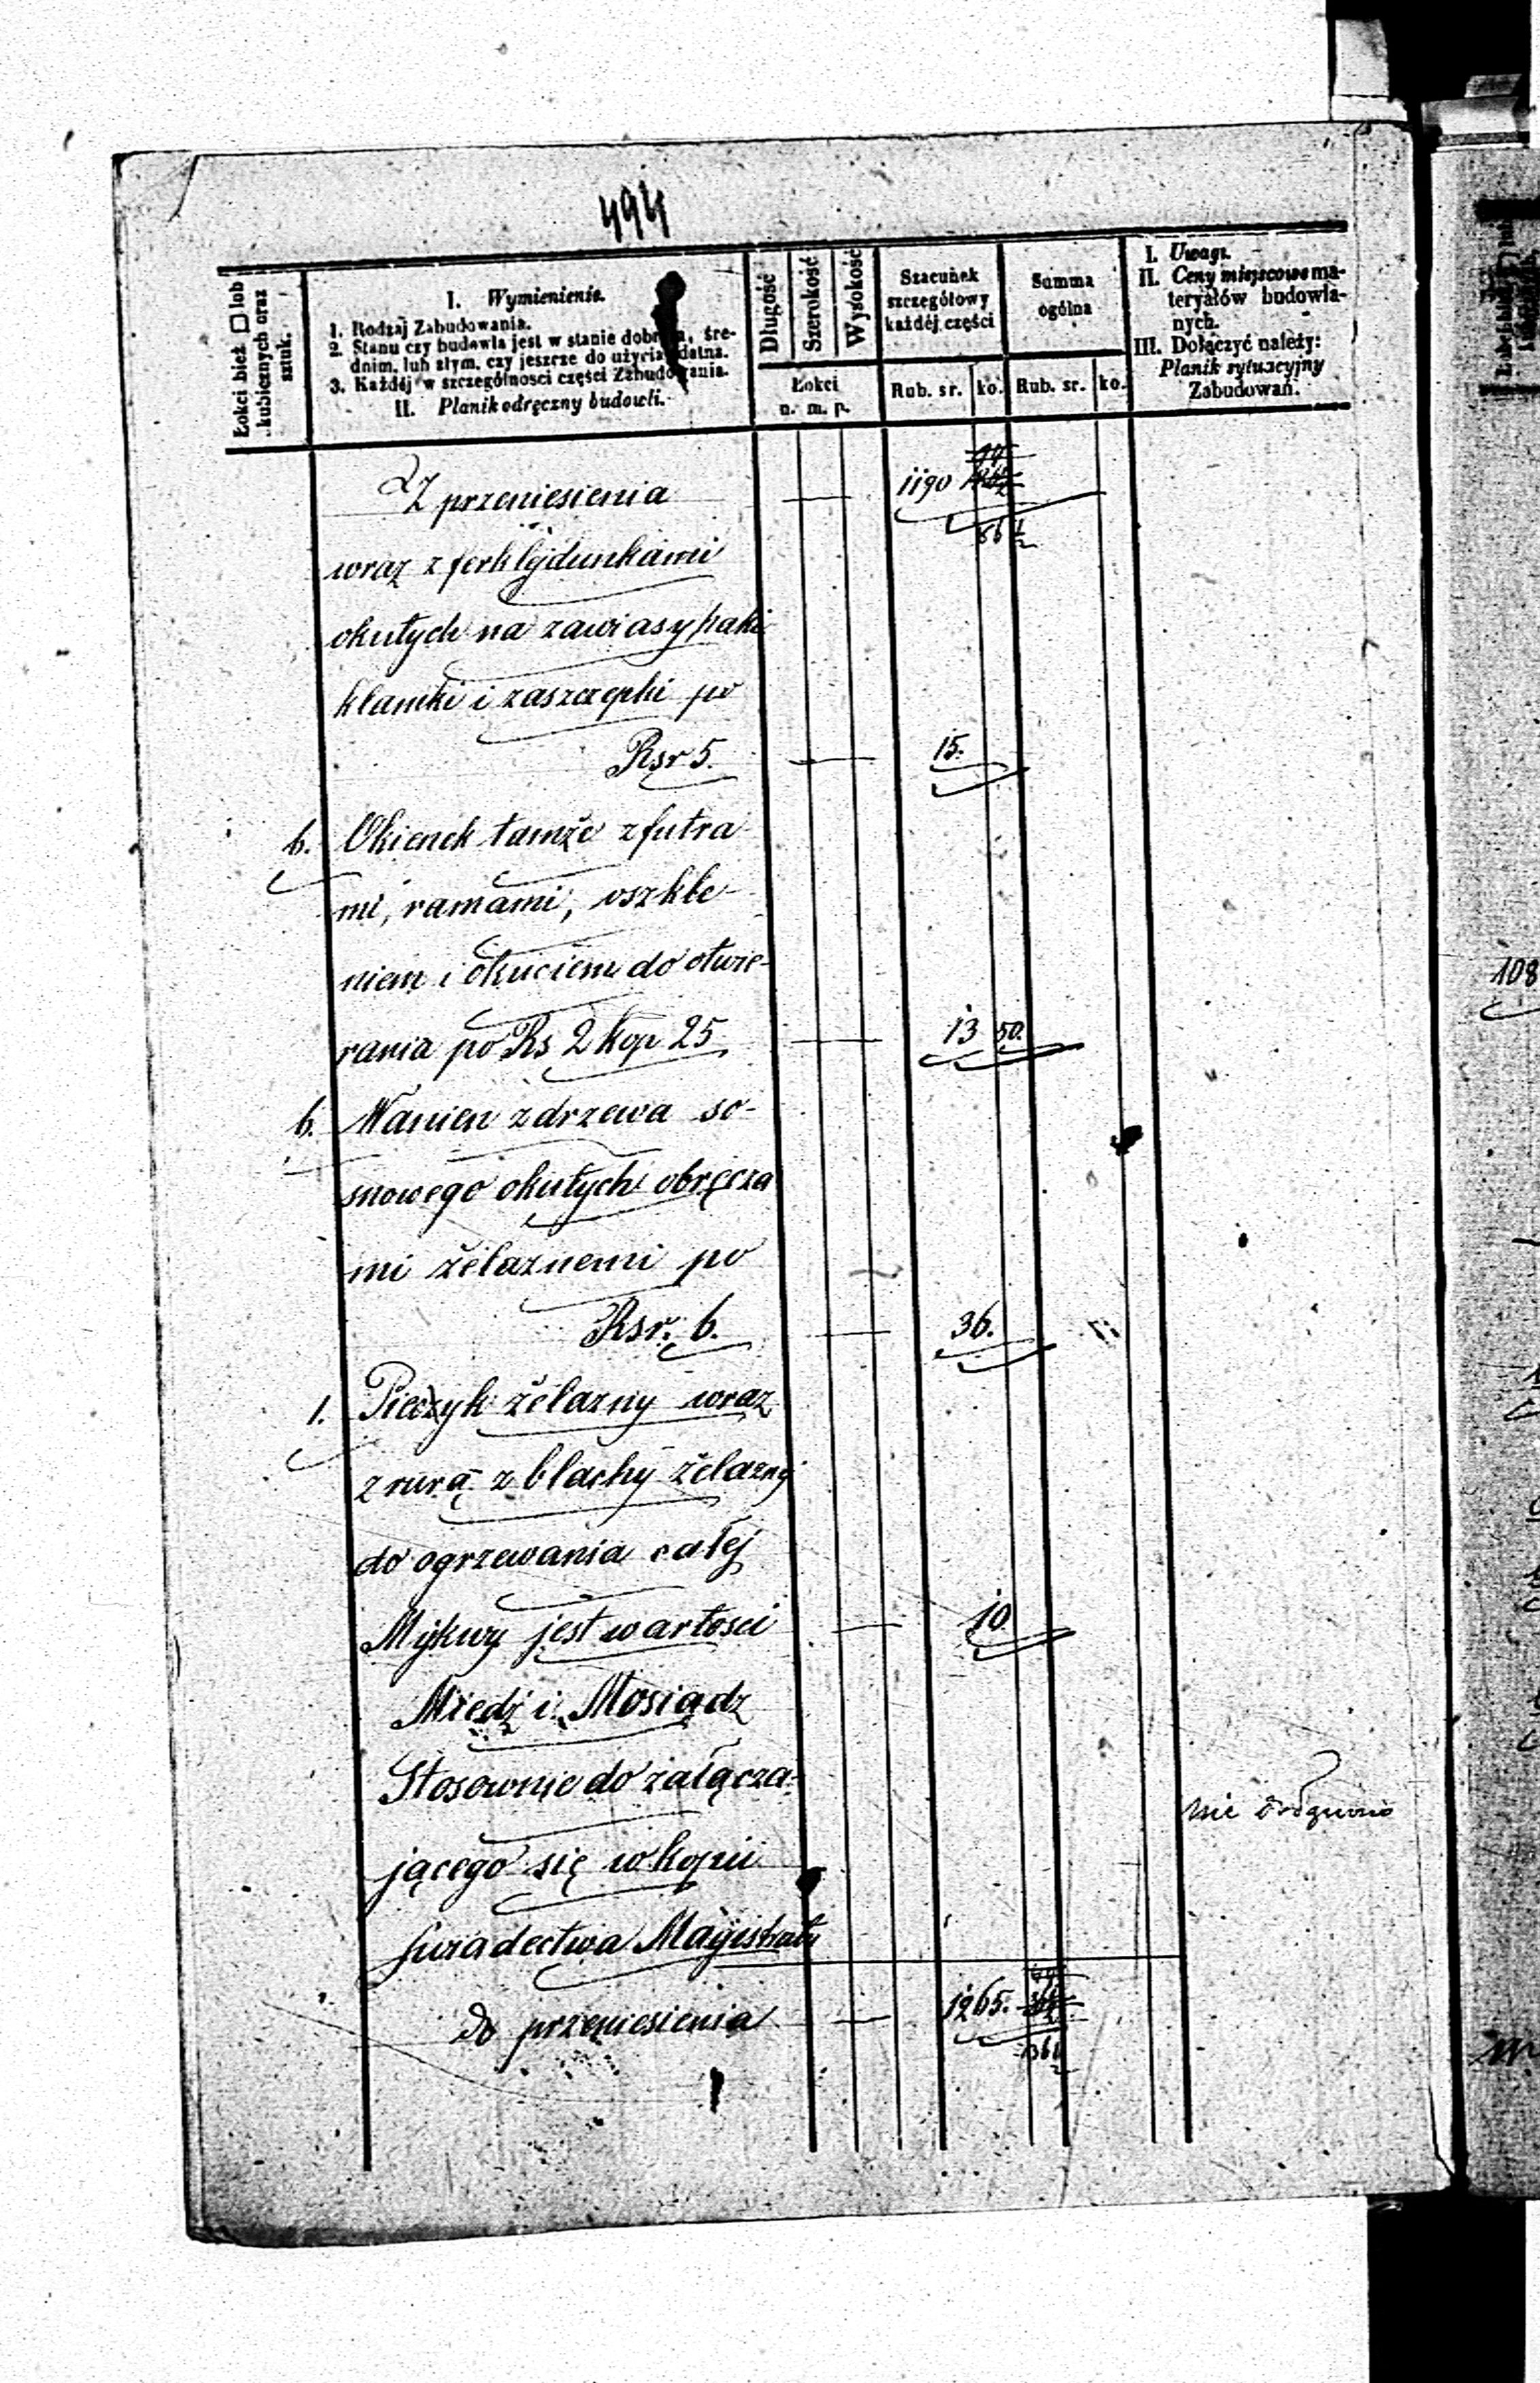 494
Łokci bież □ lub
kubicznych oraz
sztuk.
I. Wymienienie.
1. Rodzaj Zabudowania.
2. Stanu czy budowla jest w stanie dobrym, śre-
dnim, lub złym, czy jeszcze do użycia zdatna.
3. Każdéj w szczególnosci części Zabudowania.
II. Planik odręczny budowli.
Długość
Szerokość
Wysokość
Łokci
n. m. p.
Szacunek
szczegółowy
każdéj części
Rub. sr. ko.
Summa
ogólna
Rub. sr. ko.
I. Uwagi.
II. Ceny miejscowe ma-
teryałów budowla-
nych.
III. Dołączyć należy:
Planik sytuacyjny
Zabudowań.
Z przeniesienia 1190
86 1/2
wraz z ferklejdunkami
okutych na zawiasy haki
klamki i zaszczepki po
Rsr 5. 15.
6. Okienek tamże z futra-
mi, ramami, oszkle-
niem i okuciem do otwie-
rania po Rs 2 kop 25 13 50.
6. Wanien z drzewa so-
snowego okutych obręcza
mi żelaznemi po
Rsr. 6. 36.
1. Piecyk żelazny wraz
z rurą z blachy żelaznej
do ogrzewania całej
Mykwy jest wartości 10
Miedź i Mosiądz
Stosownie do załącza-
jącego się w kopii
świadectwa Magistratu
nie
do przeniesienia 1265.
36 1/2
108